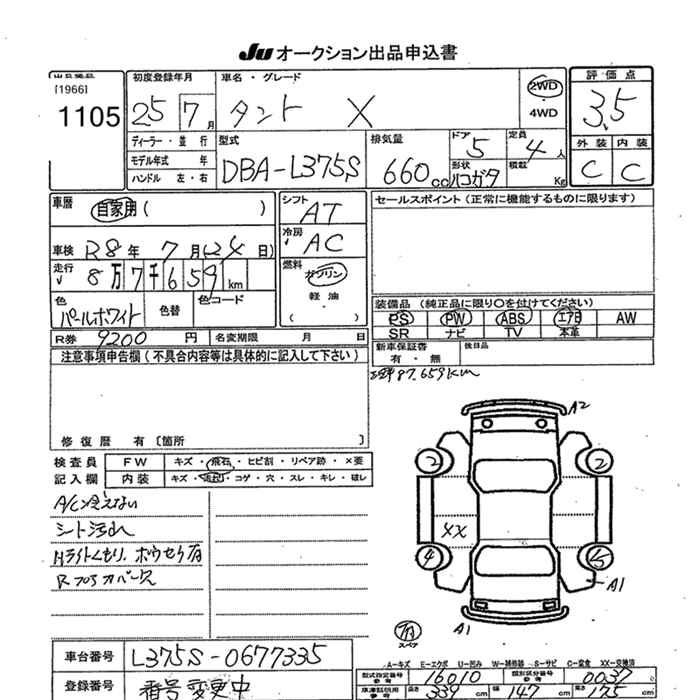 Ju オークション出品申込書
出品番号
[1966]
1105
初度登録年月
25 7月
車名・グレード
タント X
2WD
4WD
評価点
3.5
外装 内装
C C
ディーラー・並行
モデル年式 年
ハンドル 左・右
型式
DBA-L375S
排気量
660cc
ドア
5
形状
ハコガタ
定員
4人
積載
Kg
車歴
自家用( )
シフト
AT
冷房
AC
燃料
ガソリン
軽油
( ・ )
セールスポイント(正常に機能するものに限ります)
車検 R8年7月(24日)
走行 8万7千659km
色
パールホワイト
色替
色コード
R券 9200円
名変期限 月 日
装備品(純正品に限り○を付けてください)
PS PW ABS エアB AW
SR ナビ TV 本革
新車保証書
有・無
後日品
注意事項申告欄(不具合内容等は具体的に記入して下さい)
87.659km
修復歴 有[箇所 ]
検査員
記入欄
FW キズ・飛石・ヒビ割・リペア跡・×要
内装 キズ・汚れ・コゲ・穴・スレ・キレ・破レ
A/C冷えない
シート汚れ
Hライトくもり、ボウセり有
A2
2 2
XX
4 5
A1
A1
スペア
車台番号 L375S-0677335
登録番号 番号変更中
A-キズ E-エクボ U-凹 W-補修跡 S-サビ C-腐食 XX-交換済
型式指定番号 参考 16010
類別区分番号 参考 0037
長さ 339cm
幅 147cm
高さ 175cm